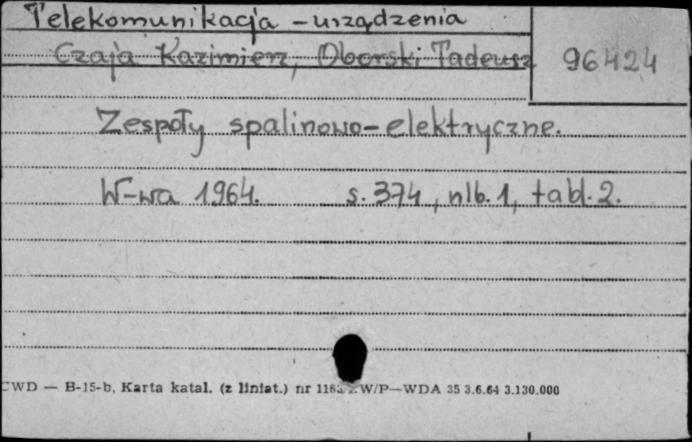 Telekomunikacja - urządzenia
Czaja Kazimierz, Oborski Tadeusz
96424
Zespoły spalinowo-elektryczne.
W-wa 1964. s. 374, nlb. 1, tabl. 2.
CWD — B-15-b. Karta katal. (z liniat.) nr W/P—WDA 35 3.6.64 3.130.000